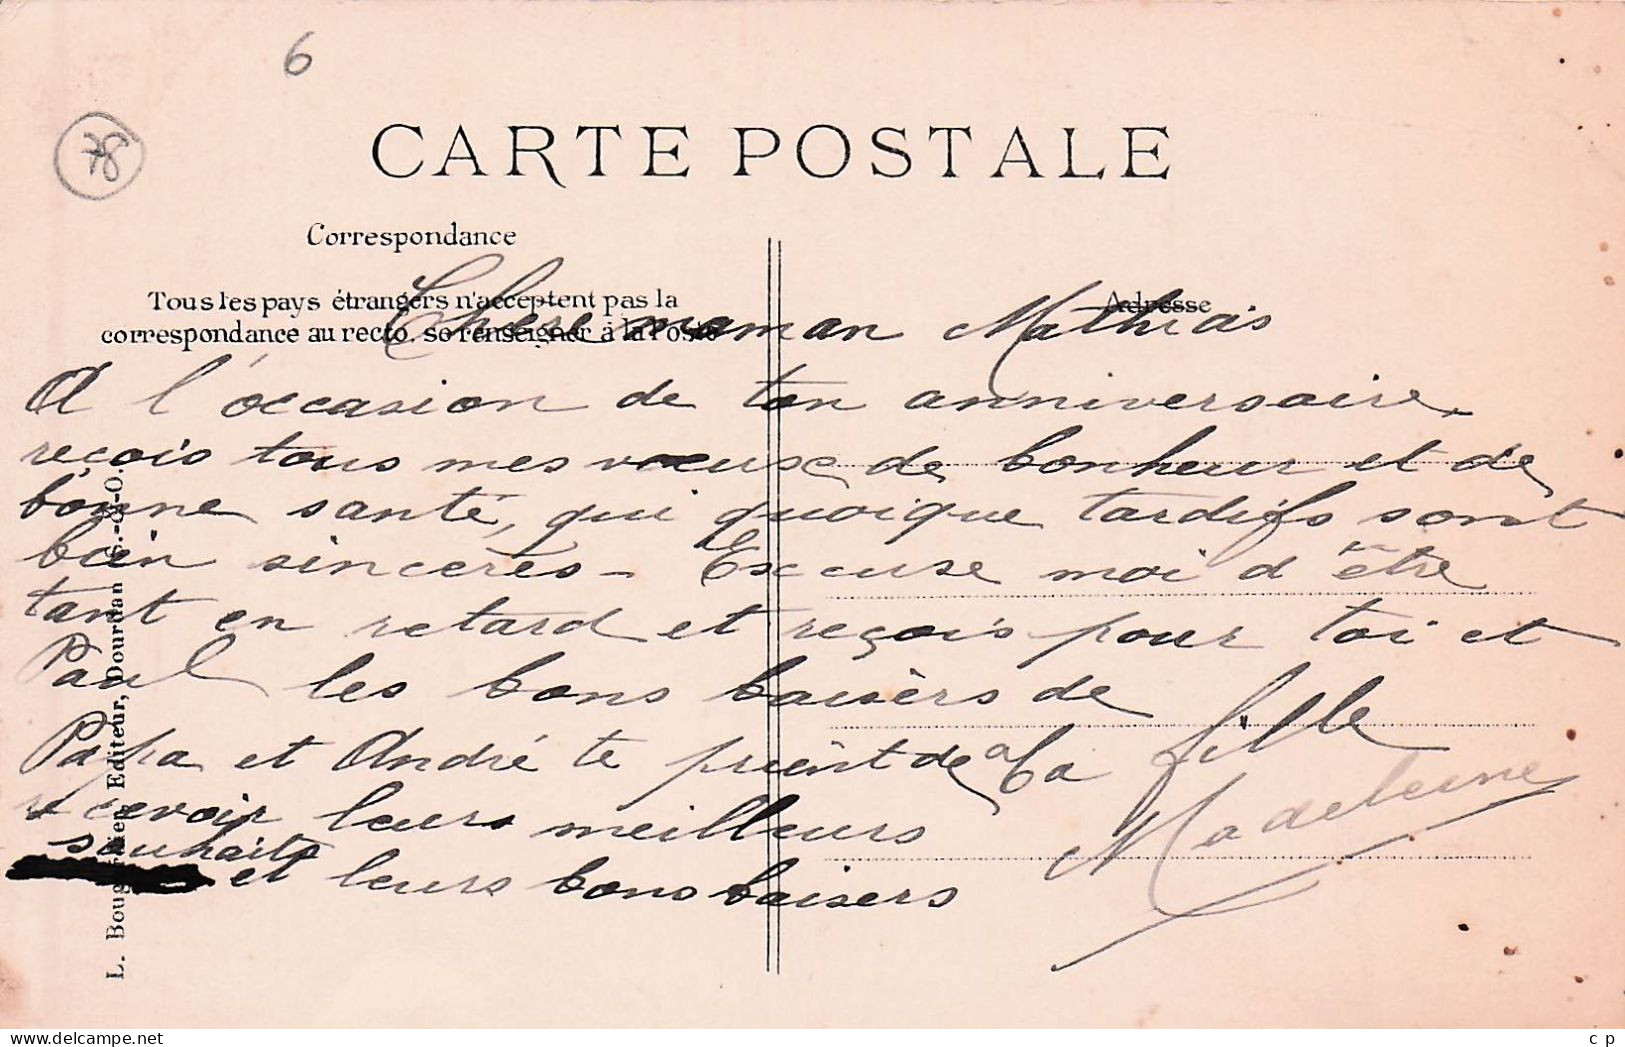 6
78
CARTE POSTALE
Correspondance
Tous les pays étrangers n'acceptent pas la
correspondance au recto, se renseigner à la Poste
Adresse
Chère maman Mathias
A l'occasion de ton anniversaire,
reçois tous mes vœuse de bonheur et de
bonne santé, qui quoique tardifs sont
bien sincères - Excuse moi d'être
tant en retard et reçois pour toi et
Paul les bons baisèrs de
ta fille
Madeleine
Papa et André te prient de
recevoir leurs meilleurs
souhaits
et leurs bons baisers
L. Editeur, Dourdan S.-&-O.
delcampe.net
c p